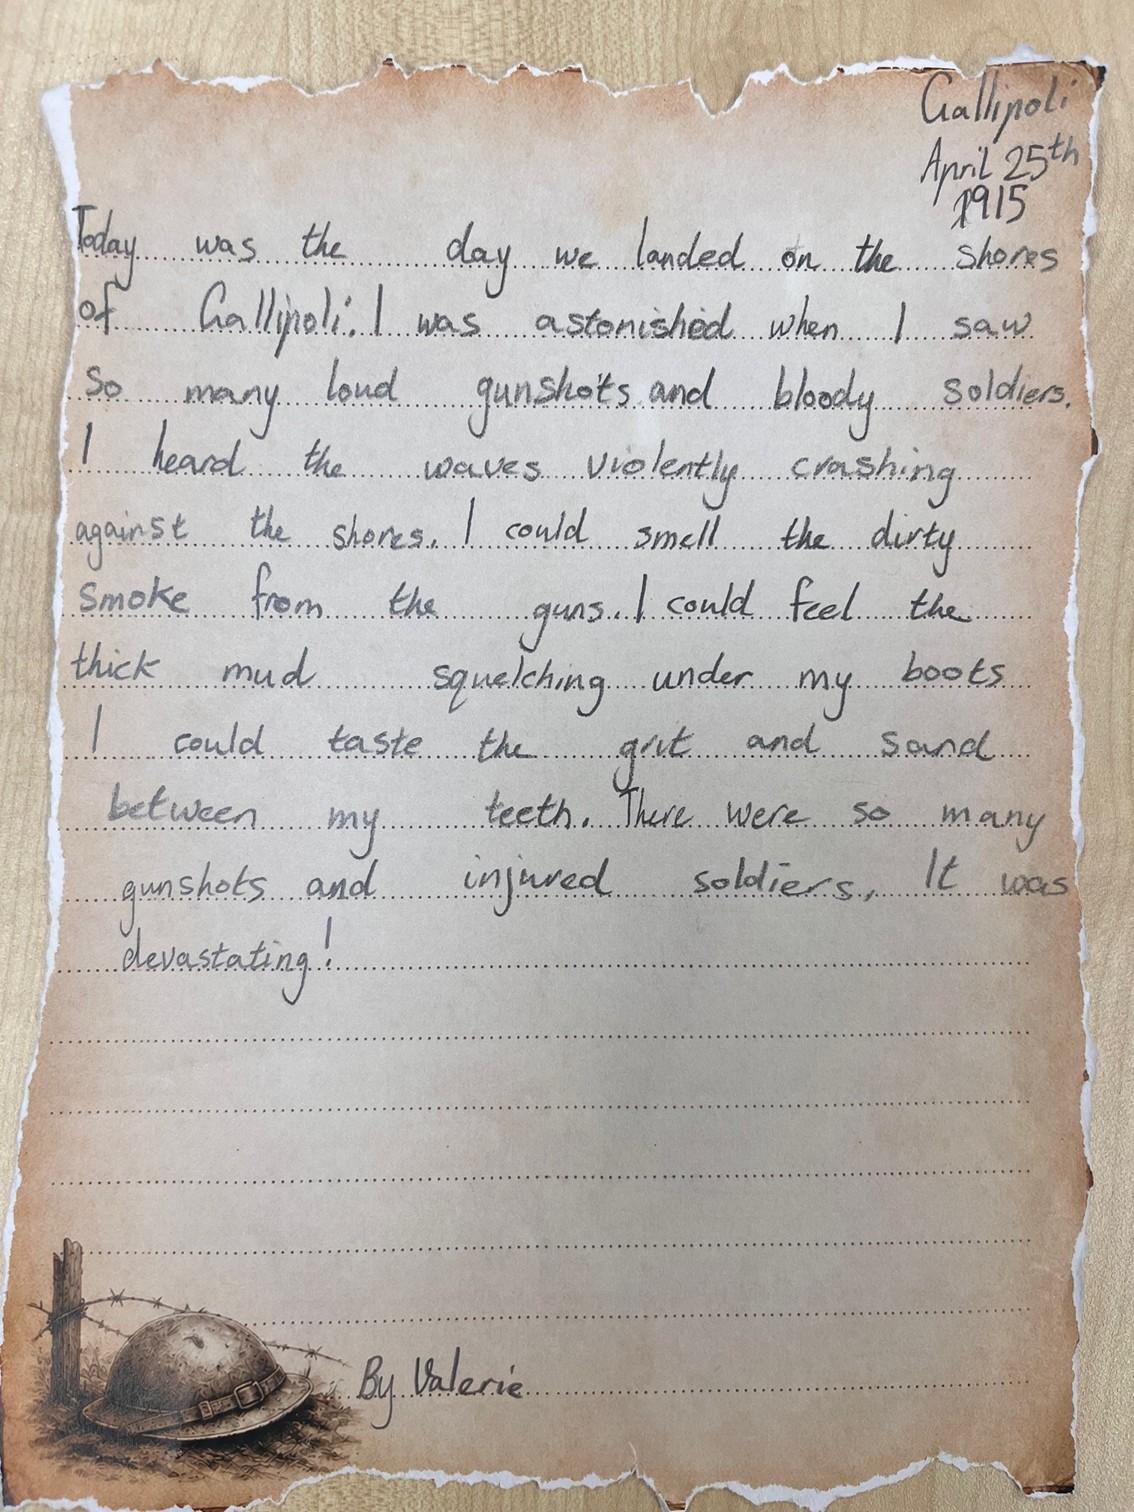 Gallipoli
April 25th
1915
Today was the day we landed on the shores
of Gallipoli. I was astonished when I saw
so many loud gunshots and bloody soldiers.
I heard the waves violently crashing
against the shores. I could smell the dirty
smoke from the guns. I could feel the
thick mud squelching under my boots
I could taste the grit and sand
between my teeth. There were so many
gunshots and injured soldiers, It was
devastating!
By Valerie